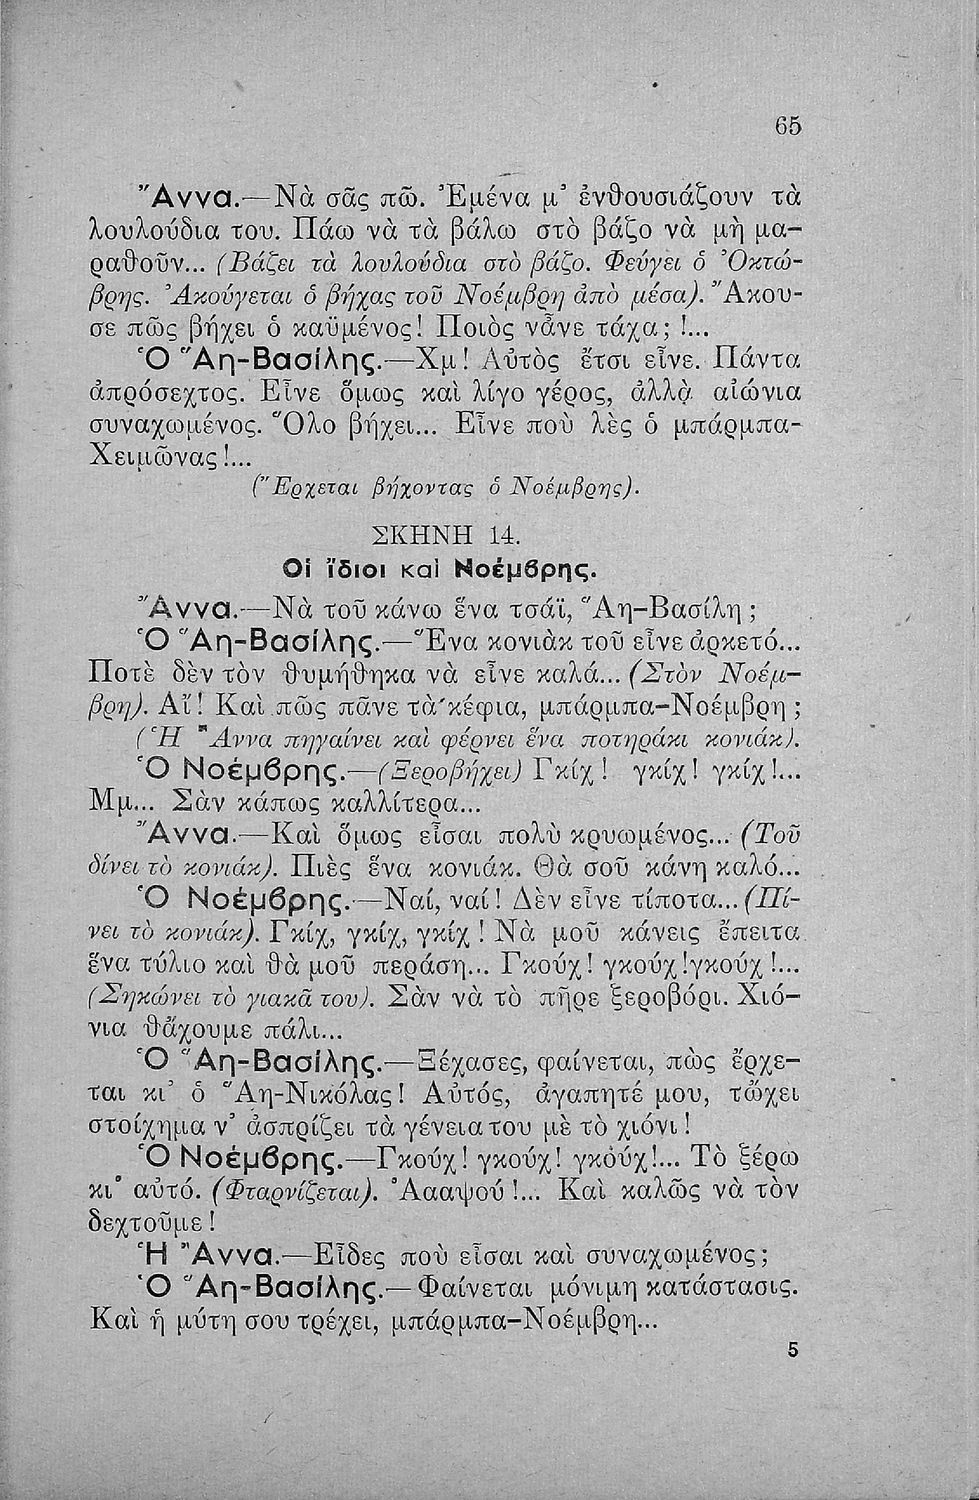 65
Ἄννα.—Νὰ σᾶς πῶ. Ἐμένα μ' ἐνθουσιάζουν τὰ
λουλούδια του. Πάω νὰ τὰ βάλω στὸ βάζο νὰ μὴ μα-
ραθοῦν... (Βάζει τὰ λουλούδια στὸ βάζο. Φεύγει ὁ Ὀκτώ-
βρης. Ἀκούγεται ὁ βήχας τοῦ Νοέμβρη ἀπὸ μέσα). Ἄκου-
σε πῶς βήχει ὁ καϋμένος! Ποιὸς νἆνε τάχα; !...
Ὁ Ἅη-Βασίλης.—Χμ! Αὐτὸς ἔτσι εἶνε. Πάντα
ἀπρόσεχτος. Εἶνε ὅμως καὶ λίγο γέρος, ἀλλὰ αἰώνια
συναχωμένος. Ὅλο βήχει... Εἶνε ποὺ λὲς ὁ μπάρμπα-
Χειμῶνας!...
(Ἔρχεται βήχοντας ὁ Νοέμβρης).
ΣΚΗΝΗ 14.
Οἱ ἴδιοι καὶ Νοέμβρης.
Ἄννα.—Νὰ τοῦ κάνω ἕνα τσάϊ, Ἅη-Βασίλη;
Ὁ Ἅη-Βασίλης.—Ἕνα κονιὰκ τοῦ εἶνε ἀρκετό...
Ποτὲ δὲν τὸν θυμήθηκα νὰ εἶνε καλά... (Στὸν Νοέμ-
βρη). Αἴ! Καὶ πῶς πᾶνε τὰ κέφια, μπάρμπα-Νοέμβρη;
(Ἡ Ἄννα πηγαίνει καὶ φέρνει ἕνα ποτηράκι κονιάκ).
Ὁ Νοέμβρης.—(Ξεροβήχει) Γκίχ! γκίχ! γκίχ!...
Μμ... Σὰν κάπως καλλίτερα...
Ἄννα.—Καὶ ὅμως εἶσαι πολὺ κρυωμένος... (Τοῦ
δίνει τὸ κονιάκ). Πιὲς ἕνα κονιάκ. Θὰ σοῦ κάνη καλό...
Ὁ Νοέμβρης.—Ναί, ναί! Δὲν εἶνε τίποτα... (Πί-
νει τὸ κονιάκ). Γκίχ, γκίχ, γκίχ! Νὰ μοῦ κάνεις ἔπειτα
ἕνα τύλιο καὶ θὰ μοῦ περάση... Γκούχ! γκούχ! γκούχ!...
(Σηκώνει τὸ γιακᾶ του). Σὰν νὰ τὸ πῆρε ξεροβόρι. Χιό-
νια θἄχουμε πάλι...
Ὁ Ἅη-Βασίλης.—Ξέχασες, φαίνεται, πὼς ἔρχε-
ται κι' ὁ Ἅη-Νικόλας! Αὐτός, ἀγαπητέ μου, τὤχει
στοίχημα ν' ἀσπρίζει τὰ γένεια του μὲ τὸ χιόνι!
Ὁ Νοέμβρης.—Γκούχ! γκούχ! γκούχ!... Τὸ ξέρω
κι' αὐτό. (Φταρνίζεται). Ἀααψού!... Καὶ καλῶς νὰ τὸν
δεχτοῦμε!
Ἡ Ἄννα.—Εἶδες ποὺ εἶσαι καὶ συναχωμένος;
Ὁ Ἅη-Βασίλης.—Φαίνεται μόνιμη κατάστασις.
Καὶ ἡ μύτη σου τρέχει, μπάρμπα-Νοέμβρη...
5